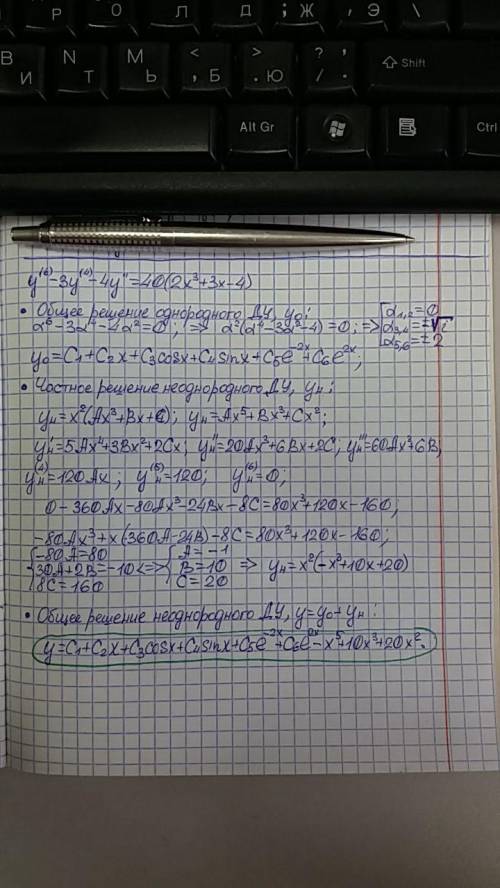 Р О Л Д ; Ж , Э \
В И N Т М Ь < , Б > . Ю ? , / . Shift
Alt Gr Ctrl
y⁽⁶⁾-3y⁽⁴⁾-4y''=40(2x³+3x-4)
• Общее решение однородного ДУ, y₀:
α⁶-3α⁴-4α²=0; => α²(α⁴-3α²-4)=0; => [α₁,₂=0
α₃,₄=±√i
α₅,₆=±2
y₀=C₁+C₂x+C₃cosx+C₄sinx+C₅e⁻²ˣ+C₆e²ˣ;
• Частное решение неоднородного ДУ, yн:
yн=x²(Ax³+Bx+C); yн=Ax⁵+Bx³+Cx²;
yн'=5Ax⁴+3Bx²+2Cx; yн''=20Ax³+6Bx+2C; yн'''=60Ax²+6B;
yн⁽⁴⁾=120Ax; yн⁽⁵⁾=120; yн⁽⁶⁾=0;
0-360Ax-80Ax³-24Bx-8C=80x³+120x-160;
-80Ax³+x(360A-24B)-8C=80x³+120x-160;
{-80A=80 {A=-1
30A+2B=-10 <=> B=10 => yн=x²(-x³+10x+20)
8C=160 C=20
• Общее решение неоднородного ДУ, y=y₀+yн:
y=C₁+C₂x+C₃cosx+C₄sinx+C₅e⁻²ˣ+C₆e²ˣ-x⁵+10x³+20x².